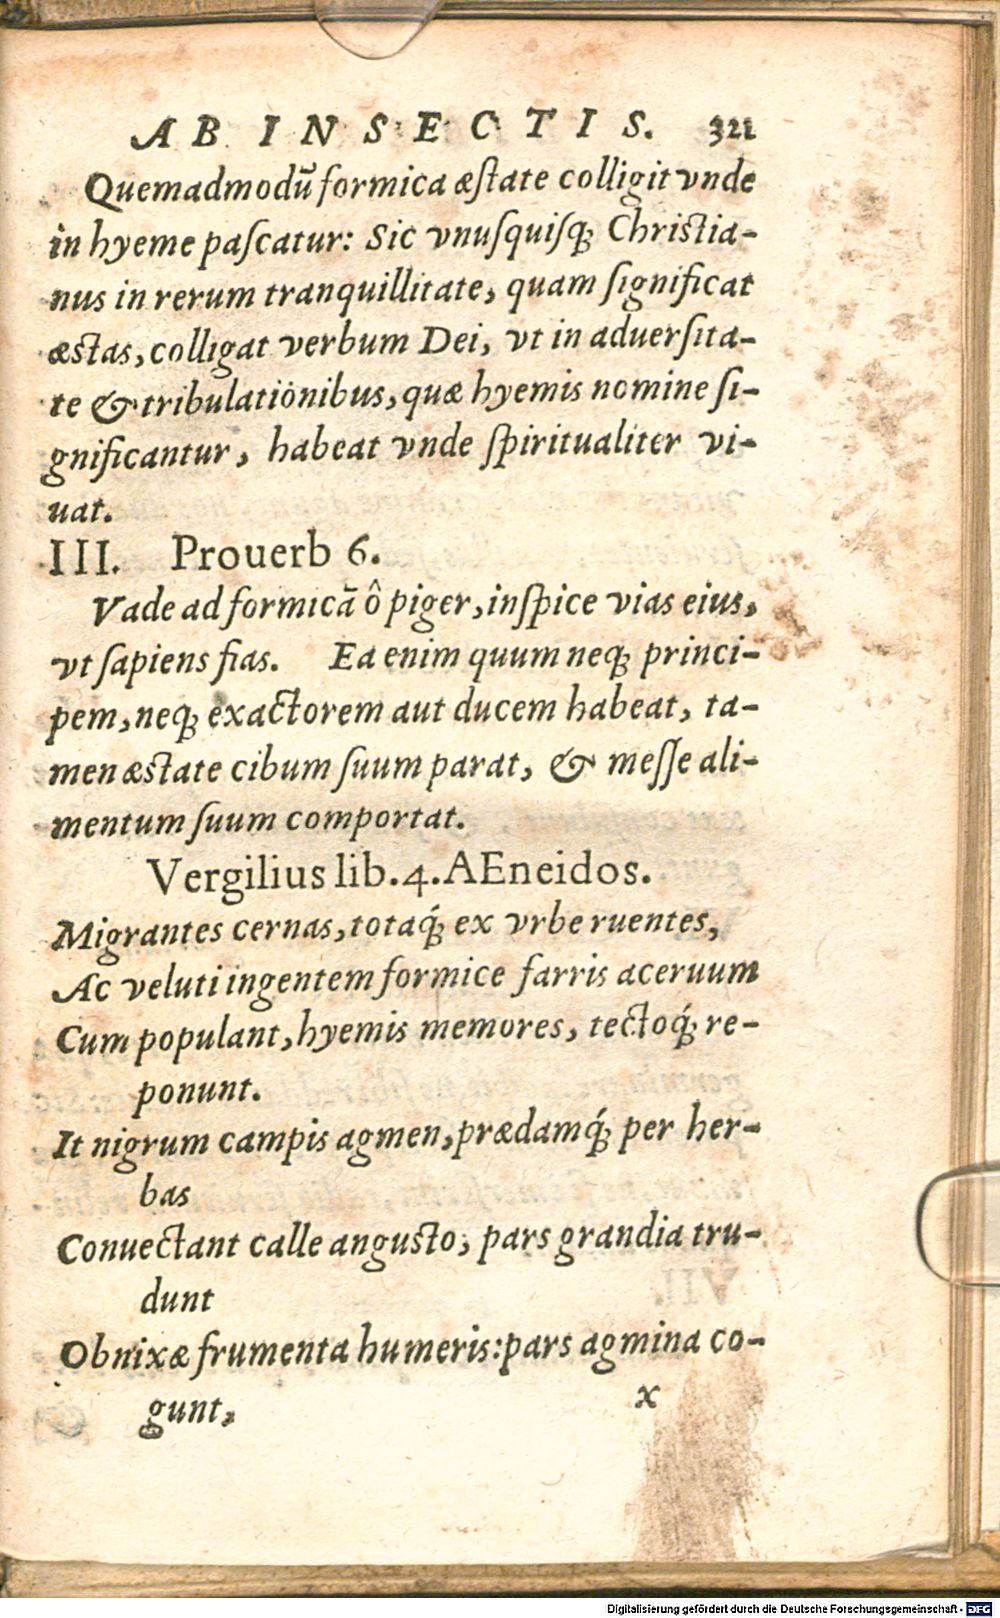 AB INSECTIS. 321
Quemadmodũ formica æſtate colligit vnde
in hyeme paſcatur: Sic vnuſquiſq; Chriſtia-
nus in rerum tranquillitate, quam ſignificat
æſtas, colligat verbum Dei, vt in aduerſita-
te & tribulationibus, quæ hyemis nomine ſi-
gnificantur, habeat vnde ſpiritualiter vi-
uat.
III. Prouerb 6.
Vade ad formicã ô piger, inſpice vias eius,
vt ſapiens fias. Ea enim quum neq; princi-
pem, neq; exactorem aut ducem habeat, ta-
men æſtate cibum ſuum parat, & meſſe ali-
mentum ſuum comportat.
Vergilius lib. 4. AEneidos.
Migrantes cernas, totaq́; ex vrbe ruentes,
Ac veluti ingentem formice farris aceruum
Cum populant, hyemis memores, tectoq́; re-
ponunt.
It nigrum campis agmen, prædamq́; per her-
bas
Conuectant calle anguſto; pars grandia tru-
dunt
Obnixæ frumenta humeris: pars agmina co-
gunt,
x
Digitalisierung gefördert durch die Deutsche Forschungsgemeinschaft - DFG